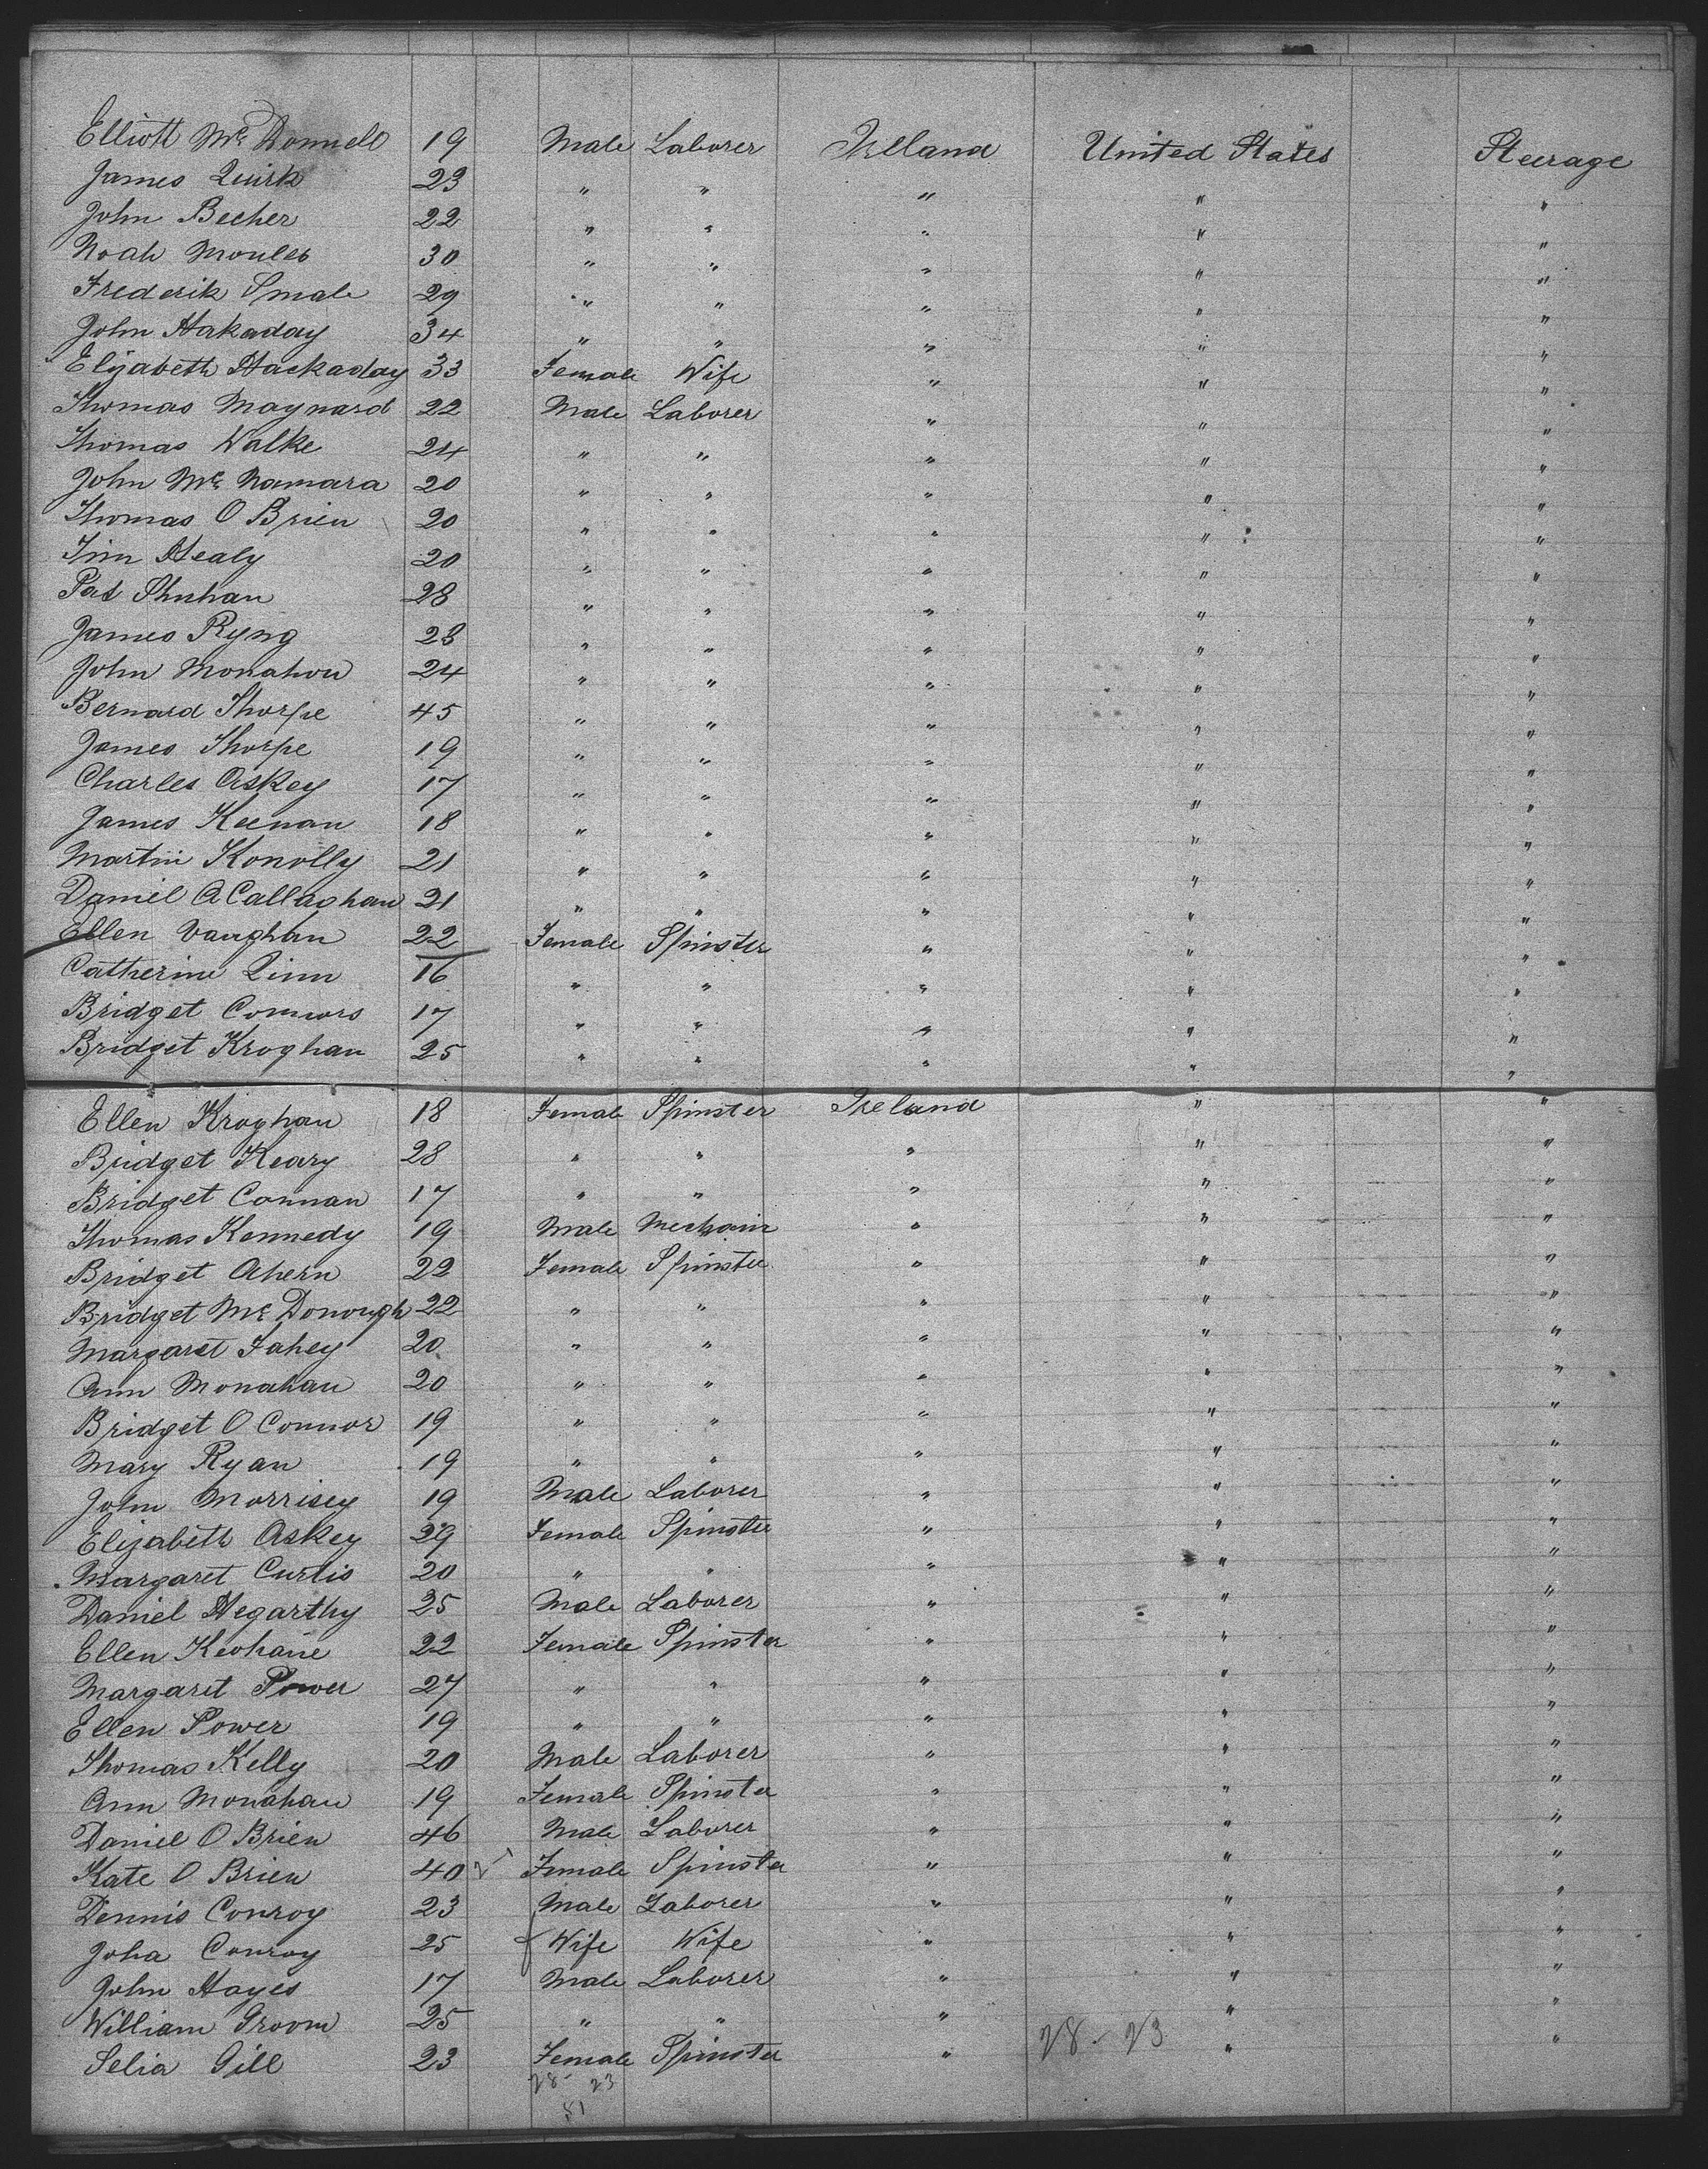 Elliott Mc Donnell 19 Male Laborer Irelland United States Steerage
James Quirk 23 " " " " "
John Becher 22 " " " " "
Noah Moules 30 " " " " "
Frederik Smale 29 " " " " "
John Hakaday 34 " " " " "
Elizabeth Hackaday 33 Female Wife " " "
Thomas Maynard 22 Male Laborer " " "
Thomas Walke 24 " " " " "
John Mc Namara 20 " " " " "
Thomas O Brien 20 " " " " "
Tim Healy 20 " " " " "
Pat Shuhan 28 " " " " "
James Ryng 23 " " " " "
John Monahon 24 " " " " "
Bernard Thorpe 45 " " " " "
James Thorpe 19 " " " " "
Charles Askey 17 " " " " "
James Keenan 18 " " " " "
Martin Konolly 21 " " " " "
Daniel O Callaghan 21 " " " " "
Ellen Vaughan 22 Female Spinster " " "
Catherine Linn 16 " " " " "
Bridget Connors 17 " " " " "
Bridget Kroghan 25 " " " " "
Ellen Kroghan 18 Female Spinster Ireland " "
Bridget Keary 28 " " " " "
Bridget Connan 17 " " " " "
Thomas Kennedy 19 Male " " "
Bridget Ahern 22 Female Spinster " " "
Bridget Mc Donough 22 " " " " "
Margaret Fahey 20 " " " " "
Ann Monahan 20 " " " " "
Bridget O Connor 19 " " " " "
Mary Ryan 19 " " " " "
John Morrisey 19 Male Laborer " " "
Elizabeth Askey 29 Female Spinster " " "
Margaret Curtis 20 " " " " "
Daniel Hegarthy 25 Male Laborer " " "
Ellen Keohane 22 Female Spinster " " "
Margaret Power 27 " " " " "
Ellen Power 19 " " " " "
Thomas Kelly 20 Male Laborer " " "
Ann Monahan 19 Female Spinster " " "
Daniel O Brien 46 Male Laborer " " "
Kate O Brien 40 Female Spinster " " "
Dennis Conroy 23 Male Laborer " " "
Joha Conroy 25 Wife Wife " " "
John Hayes 17 Male Laborer " " "
William Groom 25 " " " " "
Selia Gill 23 Female Spinster " 28 - 23 " "
28 - 23
51